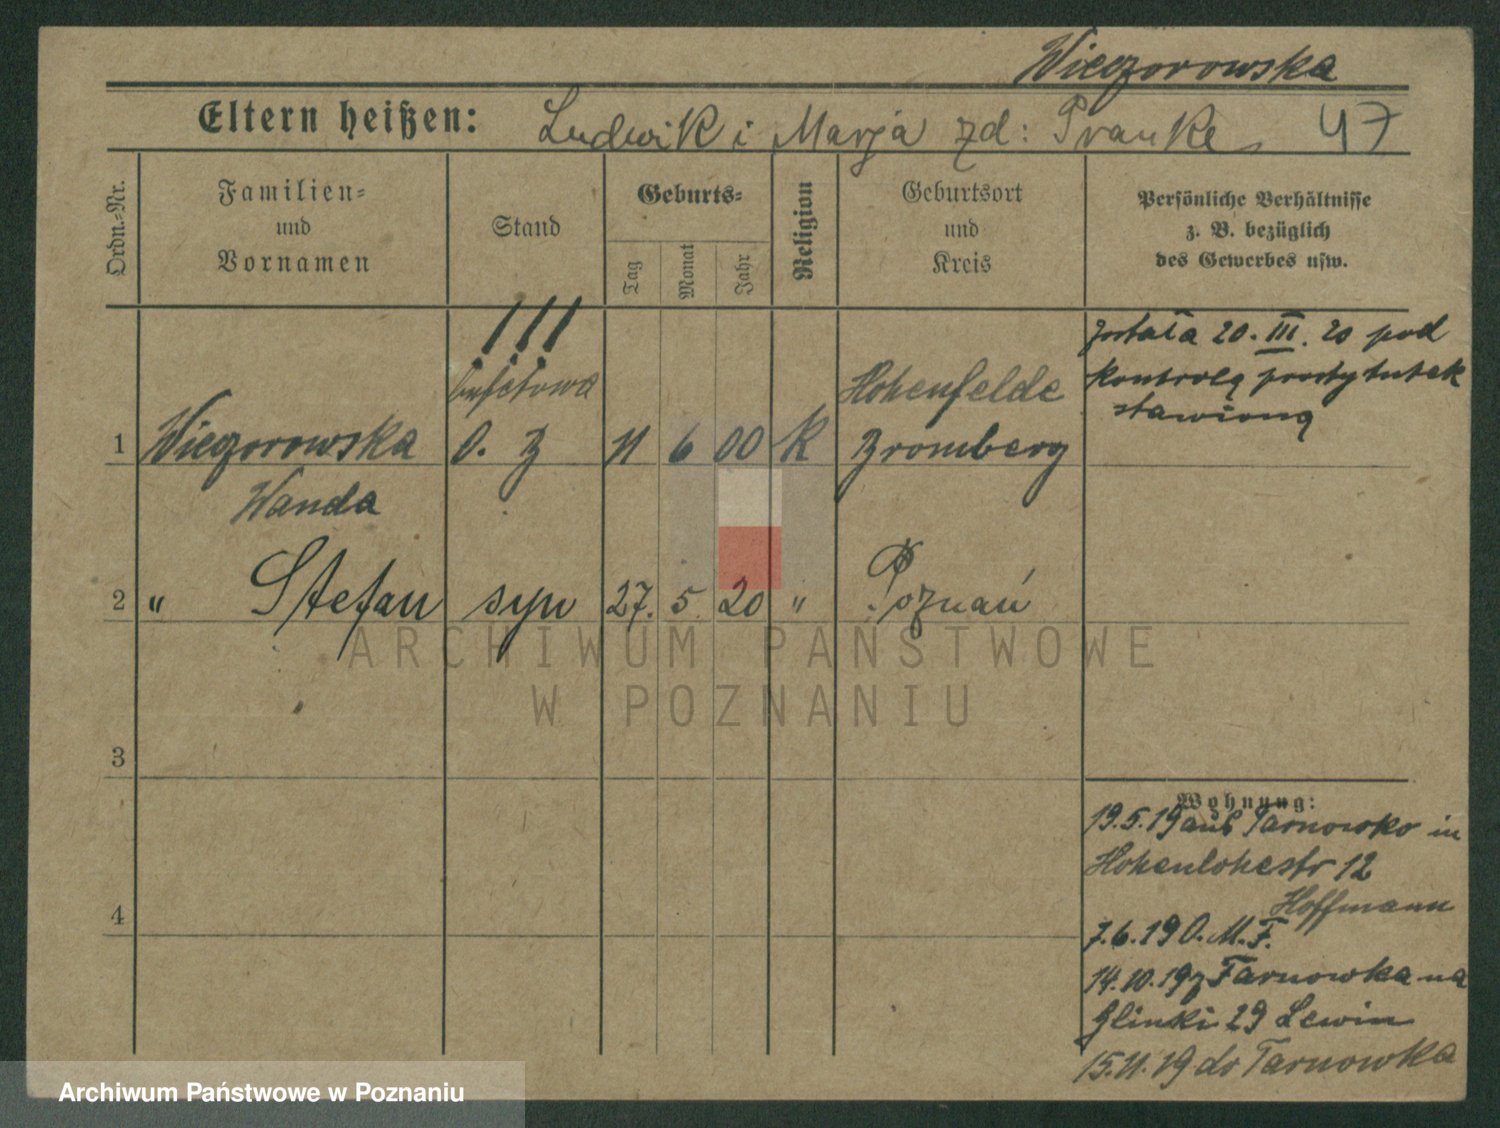 Wieczorowska
Eltern heißen: Ludwik i Marja zd: Franke 47
Ordn.=Nr.
Familien=
und
Vornamen
Stand
Geburts=
Tag
Monat
Jahr
Religion
Geburtsort
und
Kreis
Persönliche Verhältnisse
z. B. bezüglich
des Gewerbes usw.
!!!
bufetowa
Hohenfelde
została 20. III. 20 pod
kontrolą prostytutek
stawioną
1 Wieczorowska O. Z 11 6 00 K Bromberg
Wanda
2 " Stefan syn 27. 5. 20 " Poznań
ARCHIWUM PAŃSTWOWE
W POZNANIU
3
4
Wohnung:
19.5.19 aus Tarnowko in
Hohenlohestr 12
Hoffmann
7.6.19 O. M. F.
14.10.19 z Tarnowka na
Glinki 29 Lewin
15.11.19 do Tarnowka
Archiwum Państwowe w Poznaniu